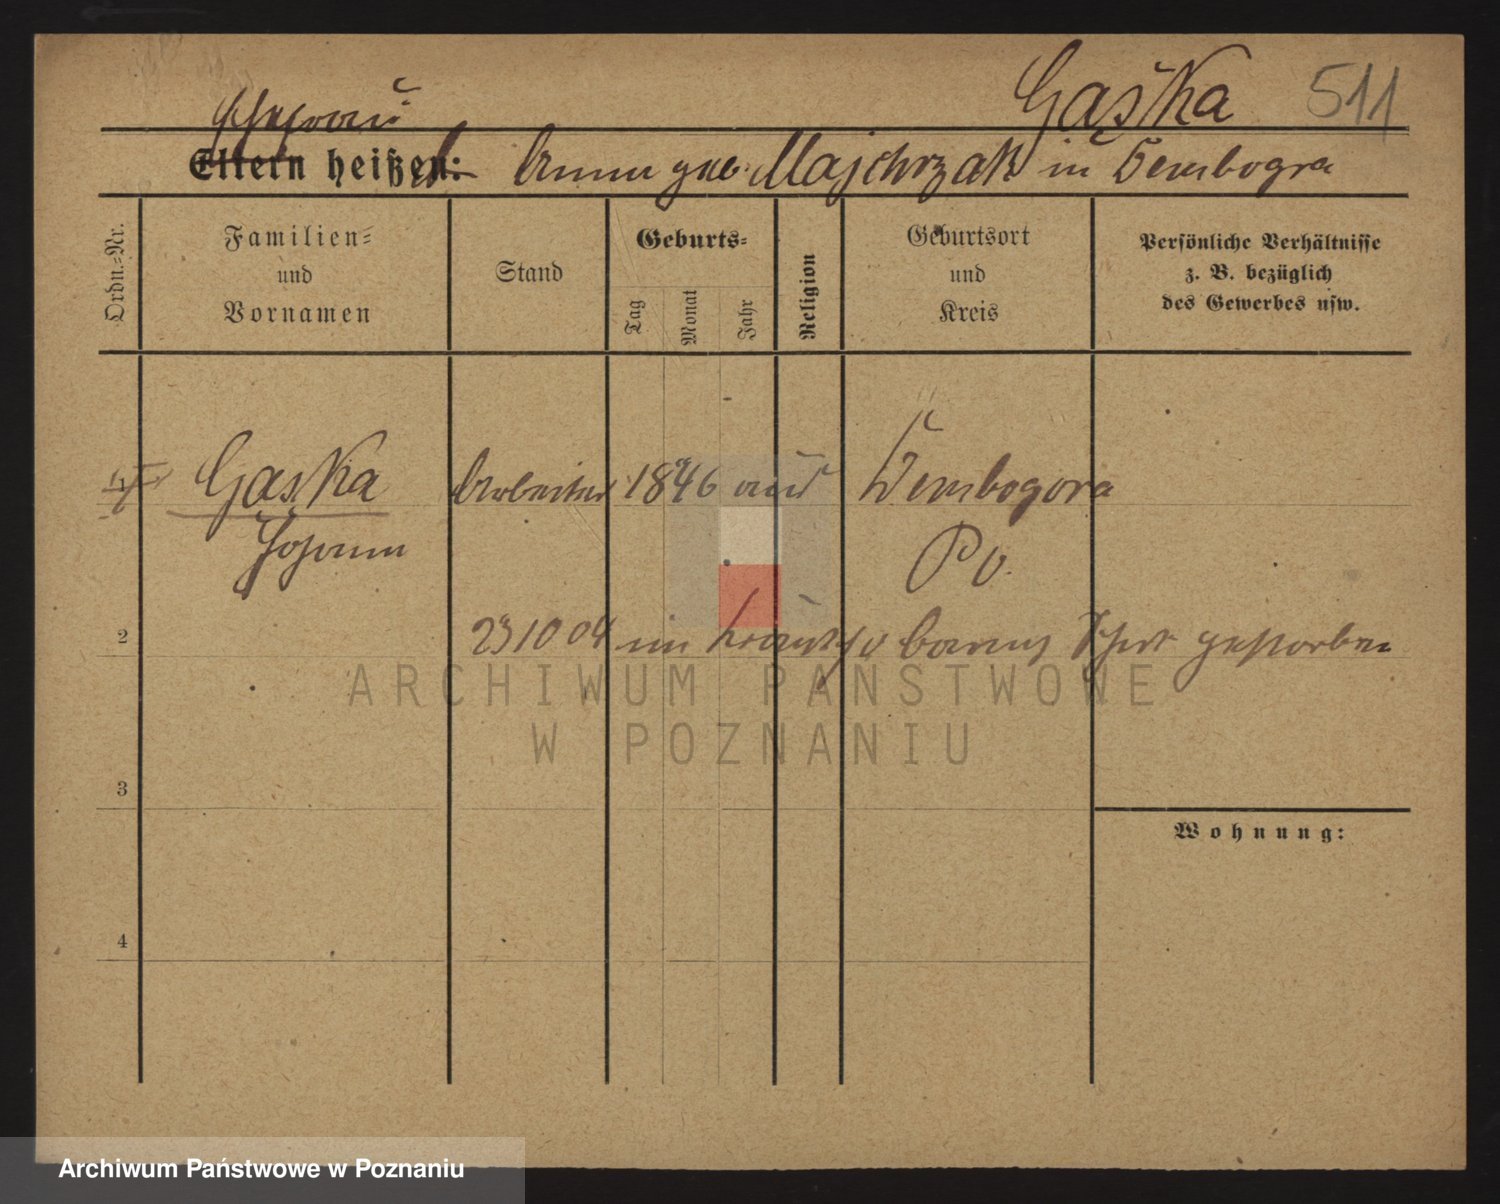 Gąska 511
Ehefrau
Eltern heißen: Anna geb. Majchrzak in Dembogra
Ordn.-Nr.
Familien-
und
Vornamen
Stand
Geburts-
Tag
Monat
Jahr
Religion
Geburtsort
und
Kreis
Persönliche Verhältnisse
z. B. bezüglich
des Gewerbes usw.
1 Gąska Arbeiter 1846 aus Dembogora
Johann
PO.
2 23 10 04 im gestorben
3
4
Wohnung:
ARCHIWUM PAŃSTWOWE
W POZNANIU
Archiwum Państwowe w Poznaniu